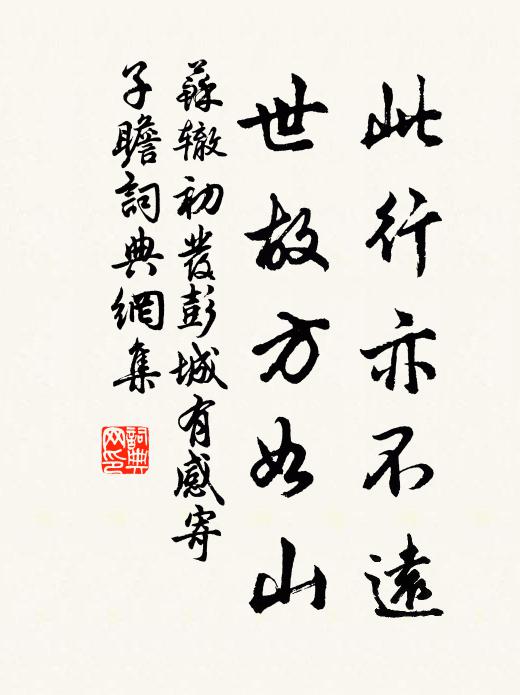 此行亦不遠
世故方如山
蘇辙初發彭城有感寄
子瞻詞典網集
詞典
网印